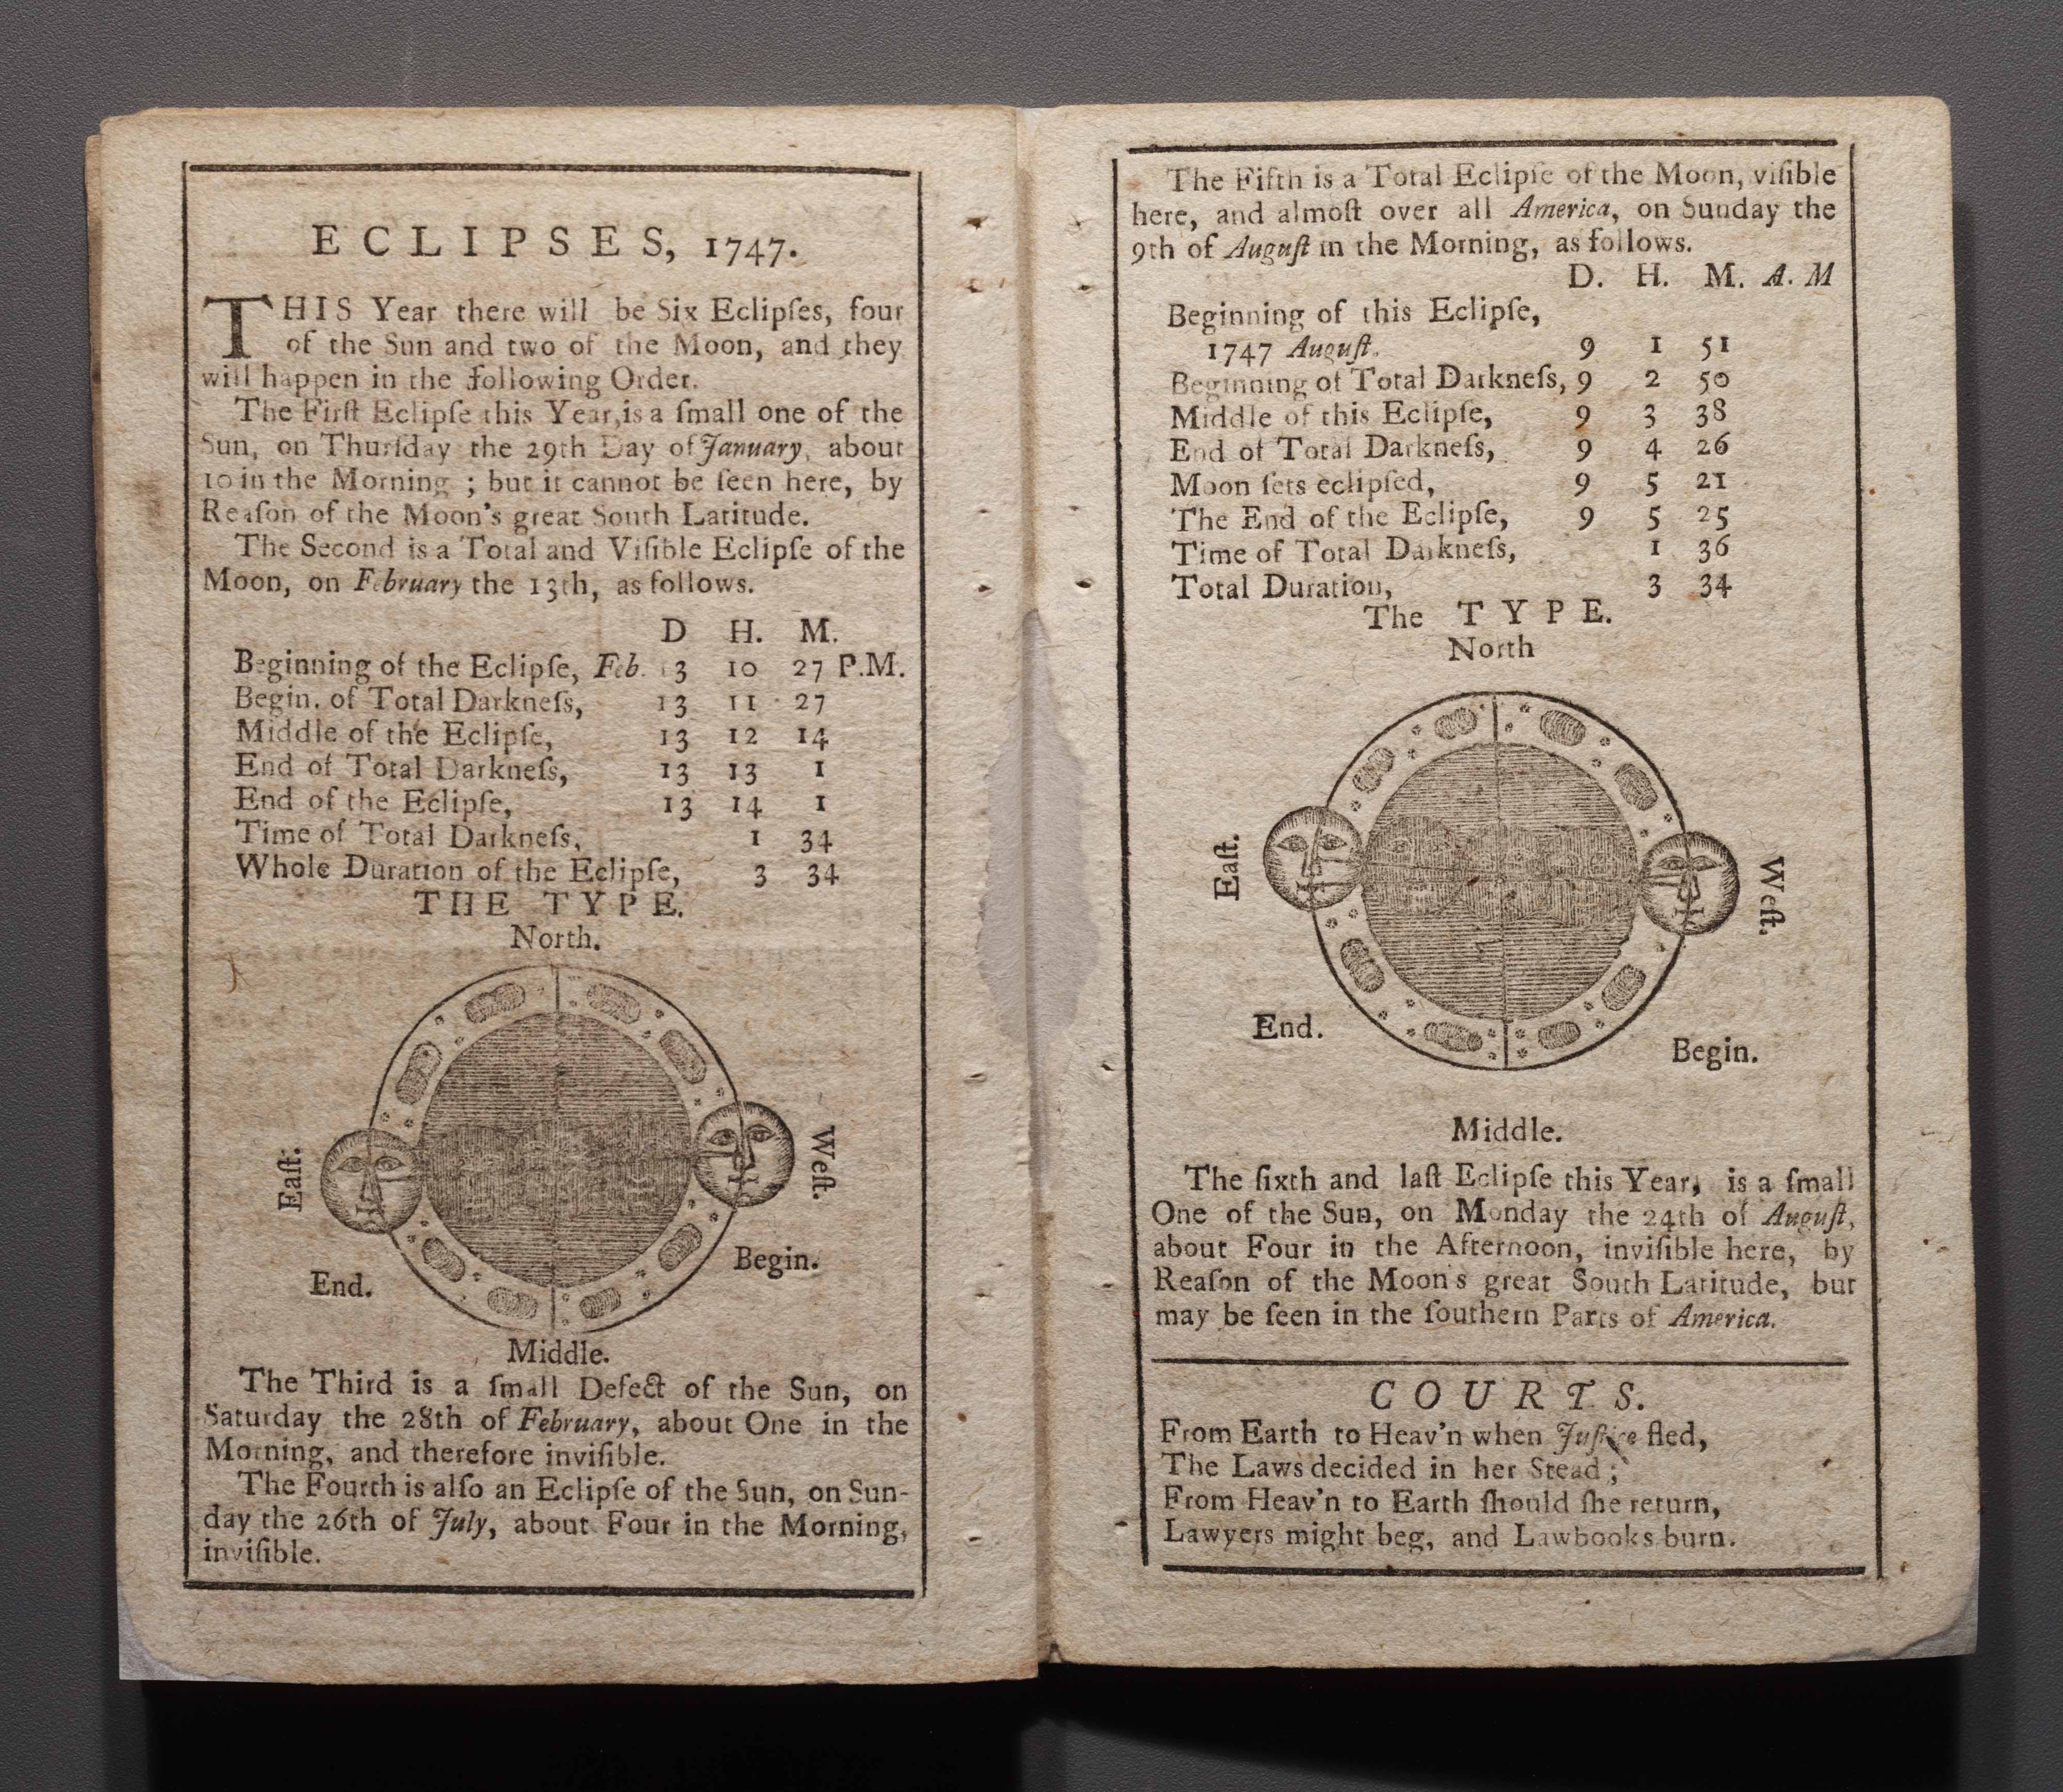 ECLIPSES, 1747.
THIS Year there will be Six Eclipſes, four
of the Sun and two of the Moon, and they
will happen in the following Order.
The Firſt Eclipſe this Year, is a ſmall one of the
Sun, on Thurſday the 29th Day of January, about
10 in the Morning ; but it cannot be ſeen here, by
Reaſon of the Moon's great South Latitude.
The Second is a Total and Viſible Eclipſe of the
Moon, on February the 13th, as follows.
D H. M.
Beginning of the Eclipſe, Feb. 13 10 27 P.M.
Begin. of Total Darkneſs, 13 11 27
Middle of the Eclipſe, 13 12 14
End of Total Darkneſs, 13 13 1
End of the Eclipſe, 13 14 1
Time of Total Darkneſs, 1 34
Whole Duration of the Eclipſe, 3 34
THE TYPE.
North.
Eaſt.
Weſt.
Begin.
End.
Middle.
The Third is a ſmall Defect of the Sun, on
Saturday the 28th of February, about One in the
Morning, and therefore inviſible.
The Fourth is alſo an Eclipſe of the Sun, on Sun-
day the 26th of July, about Four in the Morning,
inviſible.
The Fifth is a Total Eclipſe of the Moon, viſible
here, and almoſt over all America, on Sunday the
9th of Auguſt in the Morning, as follows.
D. H. M. A. M
Beginning of this Eclipſe,
1747 Auguſt. 9 1 51
Beginning of Total Darkneſs, 9 2 50
Middle of this Eclipſe, 9 3 38
End of Total Darkneſs, 9 4 26
Moon ſets eclipſed, 9 5 21
The End of the Eclipſe, 9 5 25
Time of Total Darkneſs, 1 36
Total Duration, 3 34
The TYPE.
North
Eaſt.
Weſt.
End.
Begin.
Middle.
The ſixth and laſt Eclipſe this Year, is a ſmall
One of the Sun, on Monday the 24th of Auguſt,
about Four in the Afternoon, inviſible here, by
Reaſon of the Moon's great South Latitude, but
may be ſeen in the ſouthern Parts of America.
COURTS.
From Earth to Heav'n when Juſtice fled,
The Laws decided in her Stead ;
From Heav'n to Earth ſhould ſhe return,
Lawyers might beg, and Lawbooks burn.